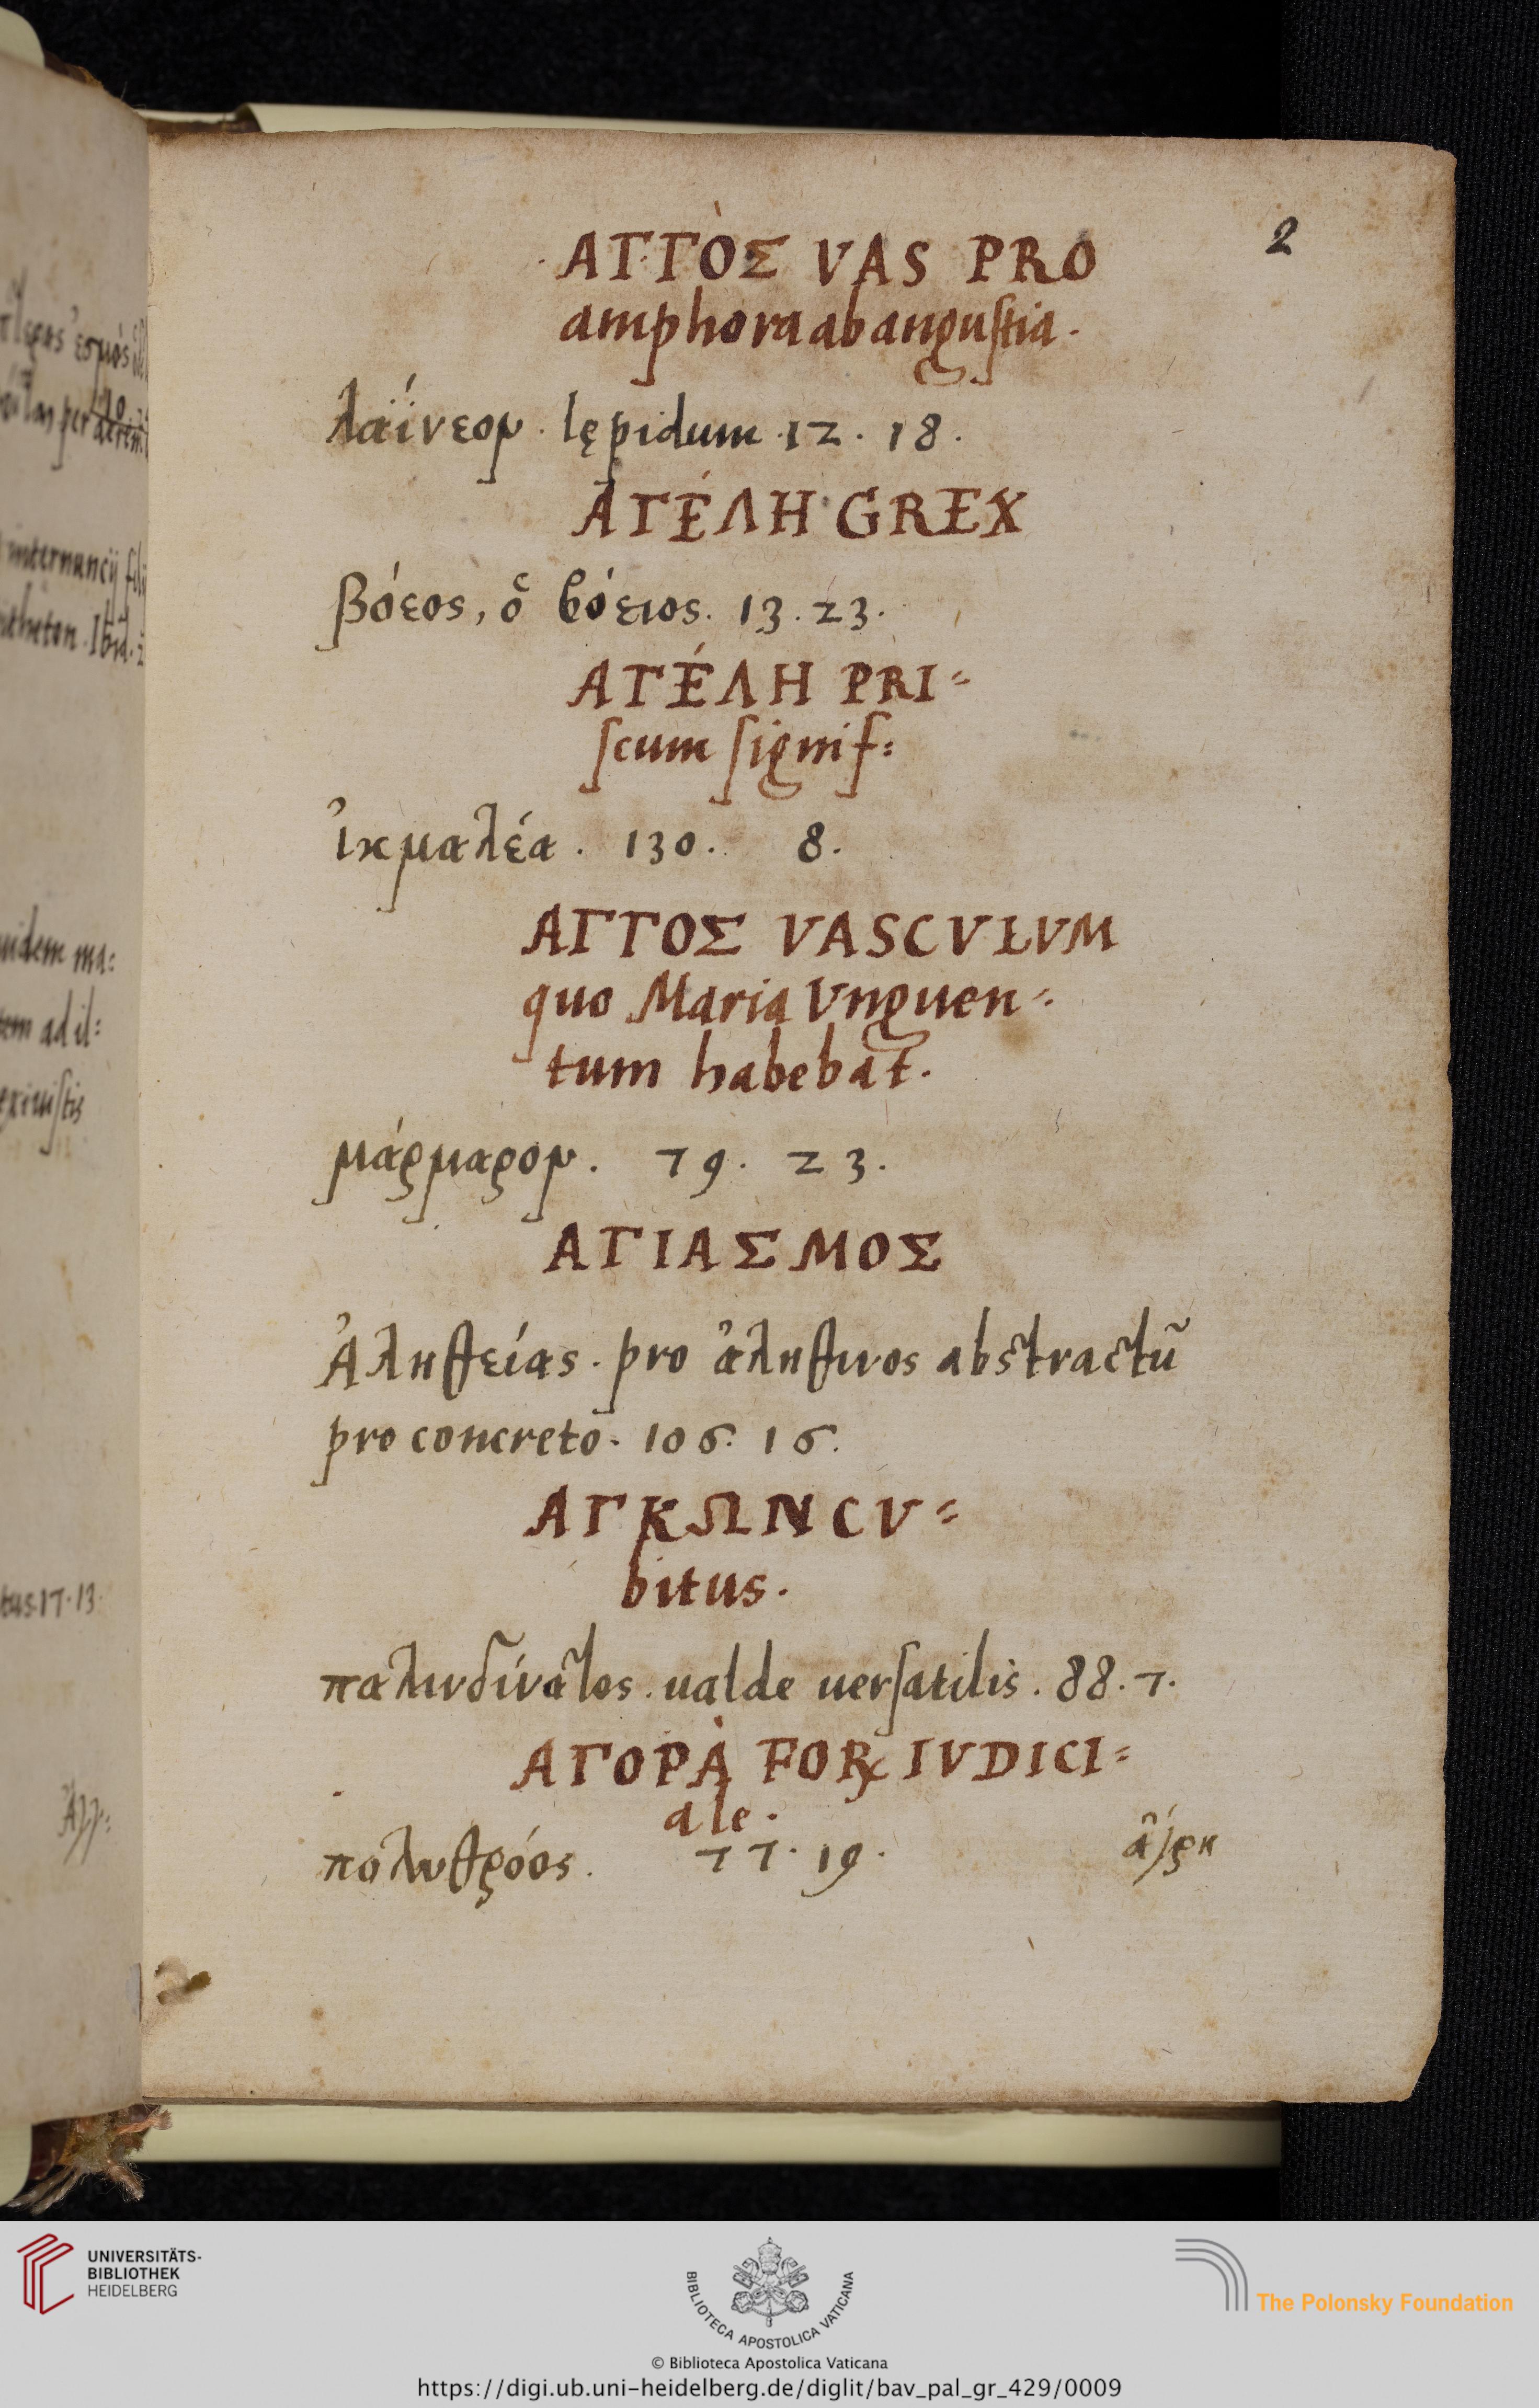 2
ΑΓΓῸΣ VAS PRO
amphora ab angustia.
λαΐνεον. lępidum. 12. 18.
ΑΓΈΛΗ GREX
βόεος, ὃ βόειος. 13. 23.
ΑΓΈΛΗ PRI=
scum signif=
ἰκμαλέα. 130. 8.
ΑΓΓΟΣ VASCVLVM
quo Maria Vnguen=
tum habebat.
μάρμαρον. 79. 23.
ΑΓΙΑΣΜΟΣ
Ἀληθείας. pro ἀληθινος abstractū
pro concreto. 106. 16.
ΑΓΚΩΝ CV=
bitus.
παλινδίνατος. ualde uersatilis. 88. 7.
ΑΓΟΡᾺ FOR IVDICI=
ale.
πολυθρόος. 77. 19.
ἄγρη
internuncij
Ibid.
uidem ma:
tem ad il:
tus. 17. 13.
UNIVERSITÄTS-
BIBLIOTHEK
HEIDELBERG
BIBLIOTECA APOSTOLICA VATICANA
The Polonsky Foundation
© Biblioteca Apostolica Vaticana
https://digi.ub.uni-heidelberg.de/diglit/bav_pal_gr_429/0009